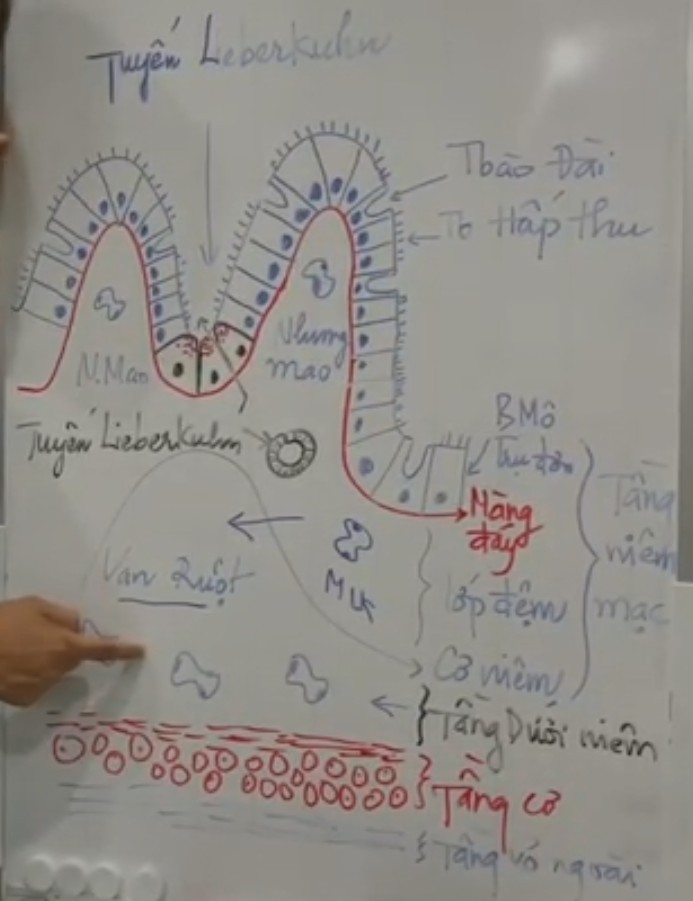 Tuyến Lieberkuhn
Tbào Đài
Tb Hấp thu
N.Mao
Nhung
mao
Tuyến Lieberkuhn
BMô
Trụ đơn
Màng
đáy
Tầng
niêm
mạc
Van Ruột
MLK
lớp đệm
Cơ niêm
Tầng Dưới niêm
Tầng cơ
Tầng vỏ ngoài